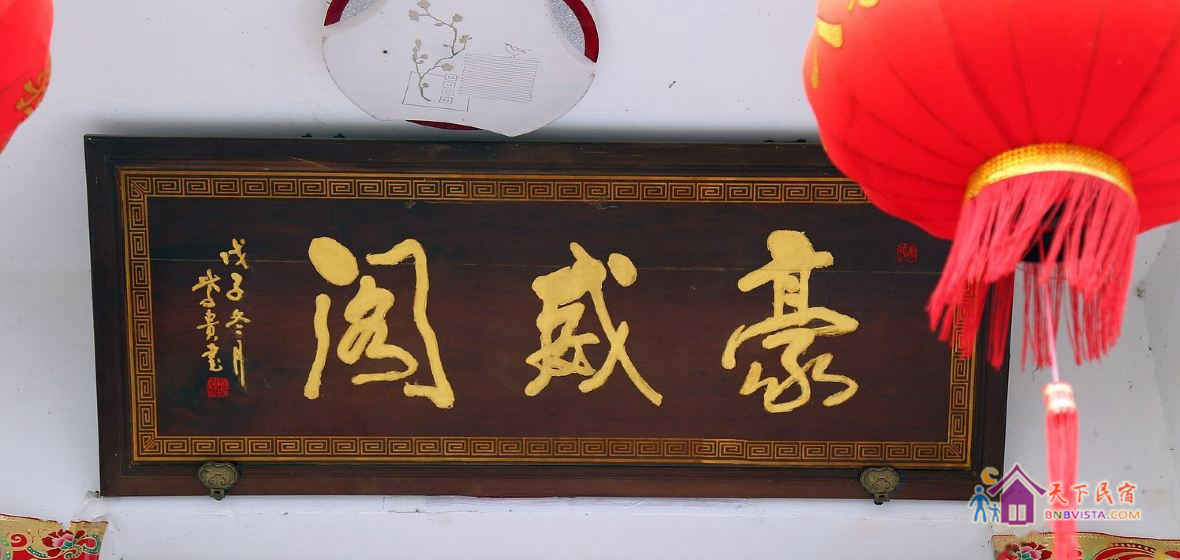 豪威阁
戊子冬月
贵书
天下民宿
BNBVISTA.COM